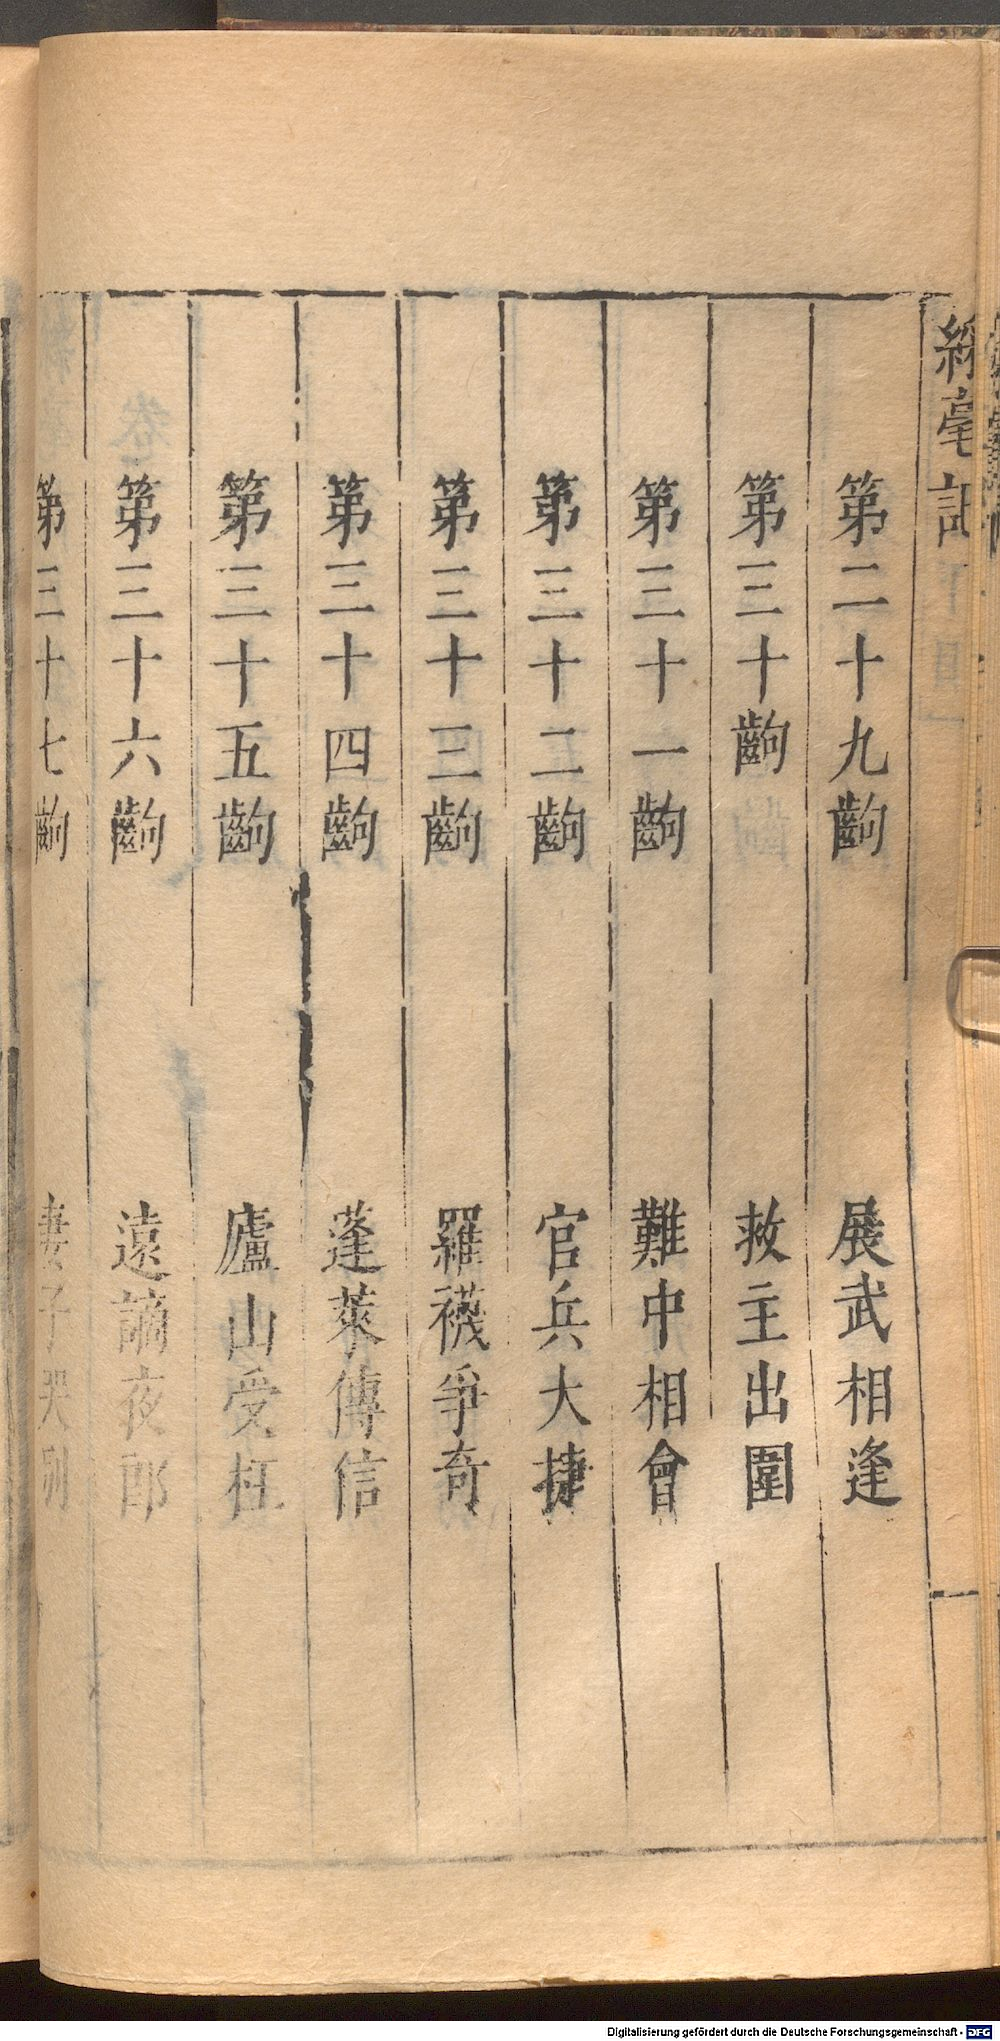 綵毫記
第二十九齣 展武相逢
第三十齣 救主出圍
第三十一齣 難中相會
第三十二齣 官兵大捷
第三十三齣 羅襪爭奇
第三十四齣 蓬萊傳信
第三十五齣 廬山受枉
第三十六齣 遠謫夜郎
第三十七齣 妻子哭別
Digitalisierung gefördert durch die Deutsche Forschungsgemeinschaft - DFG